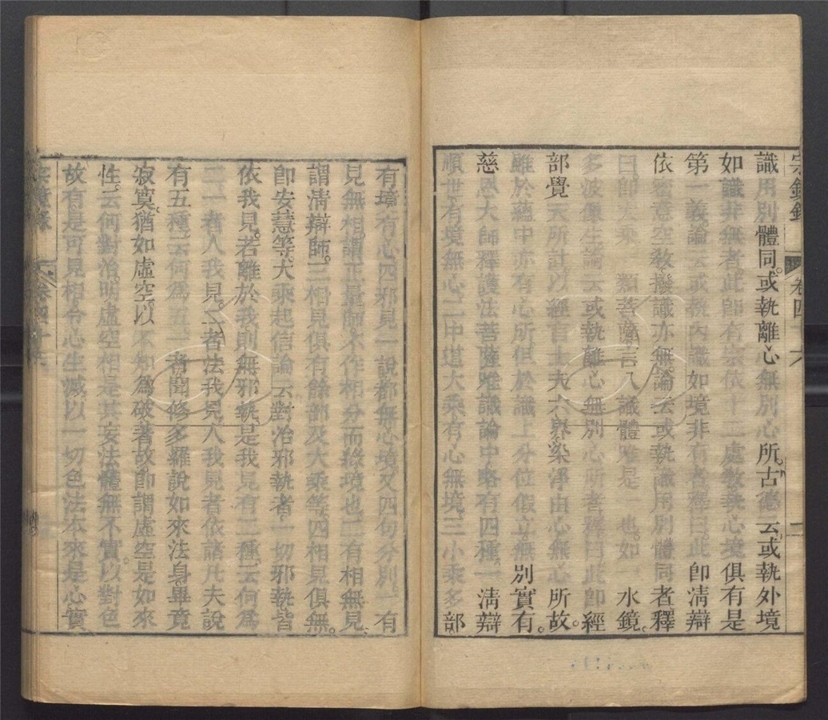 宗鏡錄 卷四十六
識用別體同。或執離心無別心所。古德云。或執外境
如識非無者。此即有宗依十二處教。執心境俱有。是
第一義論云。或執內識如境非有者。釋曰。此即清辯
依密意空教撥識亦無。論云。或執諸識用別體同者。釋
曰。即大乘一類菩薩言八識體唯是一也。如一水鏡。
多波像生。論云。或執離心無別心所者。釋曰。此即經
部覺天所計。以經言士夫六界染淨由心。無心所故。
雖於蘊中亦有心所。但於識上分位假立。無別實有。
慈恩大師釋護法菩薩唯識論中。略有四種。一清辯
順世有境無心。二中道大乘有心無境。三小乘多部
有境有心。四邪見一說都無心境。又四句分別。一有
見無相。謂正量師不作相分而緣境也。二有相無見。
謂清辯師。三相見俱有。餘部及大乘等。四相見俱無。
即安慧等。大乘起信論云。對治邪執者。一切邪執皆
依我見。若離於我則無邪執。是我見有二種。云何為
二。一者人我見。二者法我見。人我見者。依諸凡夫說
有五種。云何為五。一者聞修多羅說如來法身畢竟
寂寞猶如虛空。以不知為破著故。即謂虛空是如來
性。云何對治。明虛空相是其妄法。體無不實。以對色
故有。是可見相令心生滅。以一切色法本來是心。實